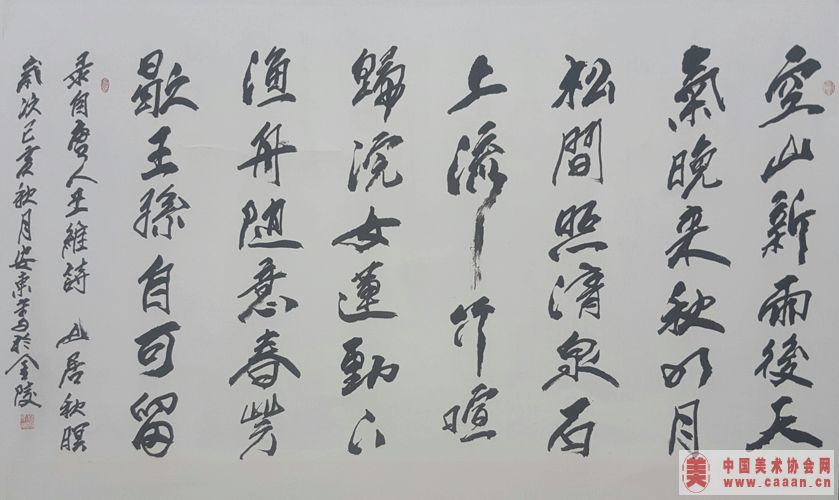 空山新雨後天
氣晚来秋明月
松間照清泉石
上流竹喧
歸浣女蓮動下
渔舟随意春芳
歇王孫自可留
录自唐人王維詩 山居秋暝
歲次己亥秋月安東於金陵
美
中国美术协会网
www.caaan.cn